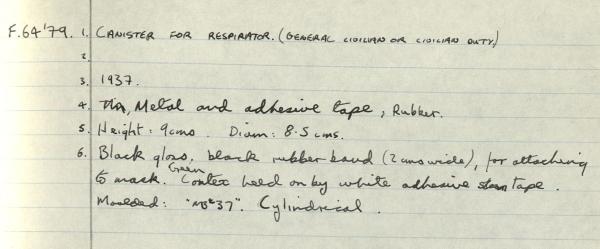 F.64'79. 1. CANISTER FOR RESPIRATOR. (GENERAL CIVILIAN OR CIVILIAN DUTY)
2.
3. 1937.
4. Tin, Metal and adhesive tape, Rubber.
5. Height: 9cms. Diam: 8.5 cms.
6. Black gloss, black rubber band (2cms wide), for attaching
to mask. Green Contex held on by white adhesive tape.
Moulded: "MB"37". Cylindrical.